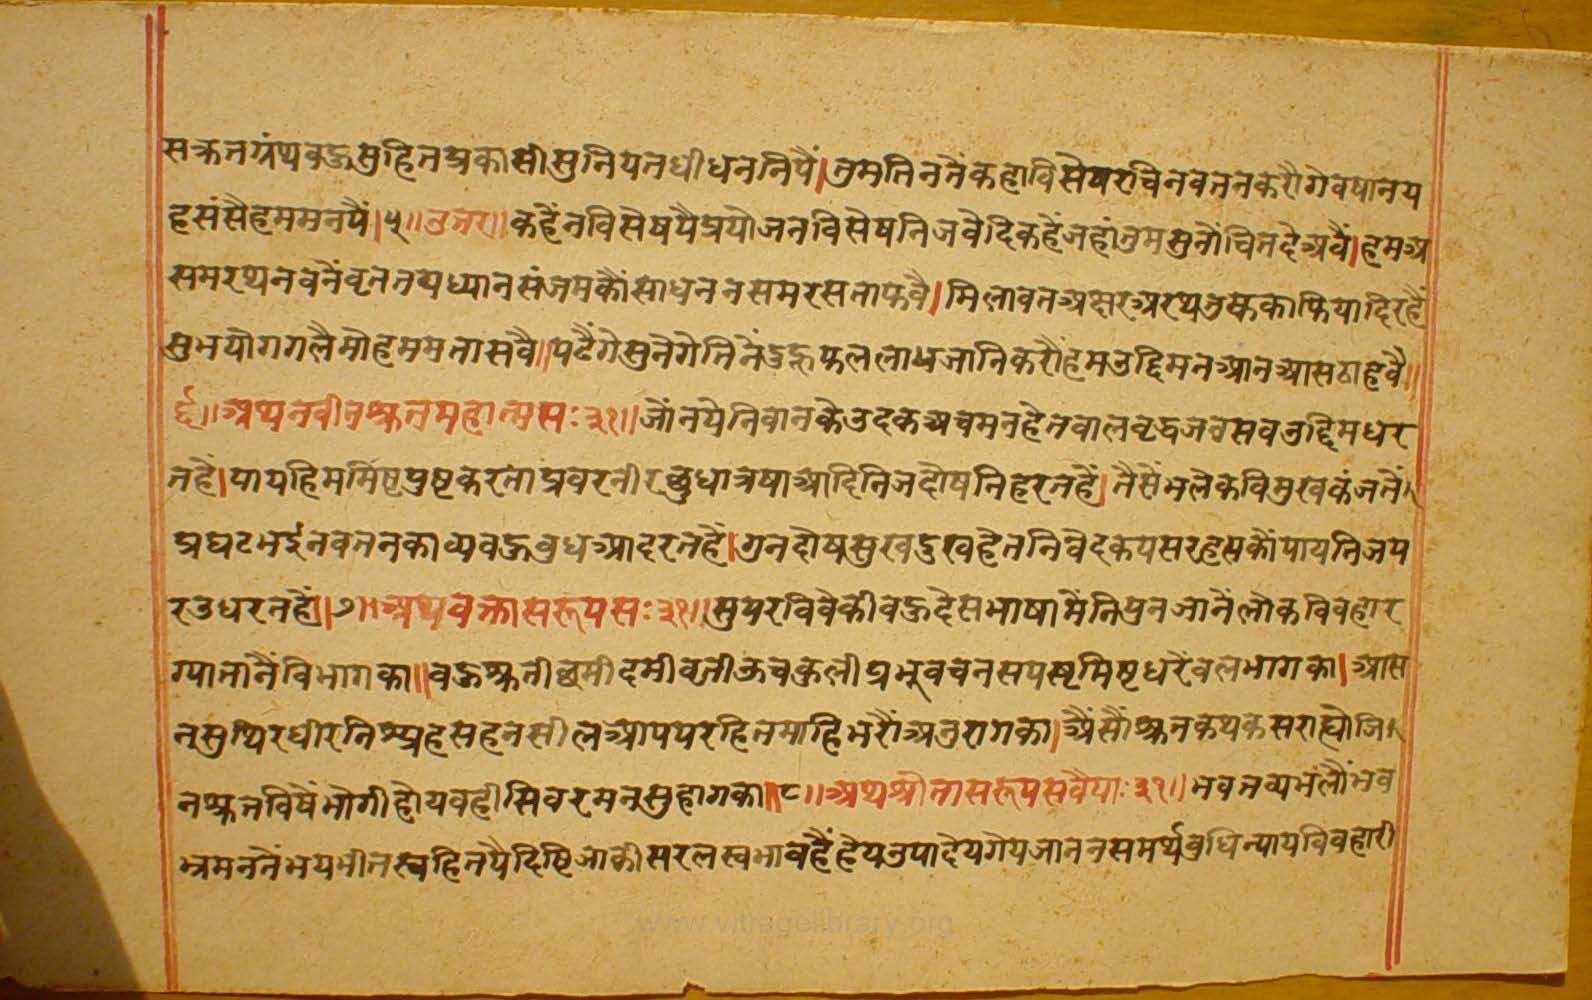 सक्तनग्रंथवऊसुहितप्रकासीसुनियतधीधननिपैं।तुमतिनतैंकहाविसेषरुचिनवतनकरौगेवषानय
हसंसैहमममनपैं।५॥उत्तर॥कहैंनविसेषपैप्रयोजनविसेषनिजवेदिकहैंजहांतुमसुनोंचितदेअवैं।हमअ
समरथनवनैंवृततपध्यानसंजमकौंसाधननसमरसताफवै।मिलावतअक्षरअरथतुककाफियादिरहैं
सुभयोगगलैमोहममतासवै॥पढैंगेसुनेगेतिनेंहुफललाधजानिकरौंहमउद्दिमनआनआसठाहवै॥
६॥अथनवीनश्कतमहात्मसः३१॥जोंनयेनिवानकेउदकअचमनहेतवालवृद्धजवसवउद्दिमधर
तहैं।पायहिमर्मिष्टपुष्टकरताप्रवरनीरछुधात्रषाआदिनिजदोषनिहरतहैं।तैसेंभलेकविमुखकंजतें
प्रघटभईनवतनकाव्यवऊवुधआदरतहैं।गुनदोषसुखदुखहेतनिवेदकपसरहसकोंपायनिजप
रउधरतहैं॥७॥अथवक्तासरूपसः३१॥सुपरविवेकीवऊदेसभाषामैंनिपुनजानैंलोकविवहार
ग्यातानैंविभागका॥वऊश्कतीछमीदमीवृतीऊचकुलीप्रभूवचनसपस्टमिष्टधरैंवलभागका।आस
नसुथिरधीरनिश्प्रहसहनसीलआपपरहितमाहिभरौंअनुरागका।अैंसौंश्कतकथकसराह्योजि
नश्कतविषैंभोगीहोयवहीसिवरमनसुहागका॥८॥अथश्रोतासरूपसवैयाः३१॥भवतव्यभंलौंभव
भ्रमनतैंभयभीतस्वहितपैदिष्टिजाकीसरलस्वभावहैंहेयउपादेयगेयजाननसमर्थवुधिन्यायविवहारी